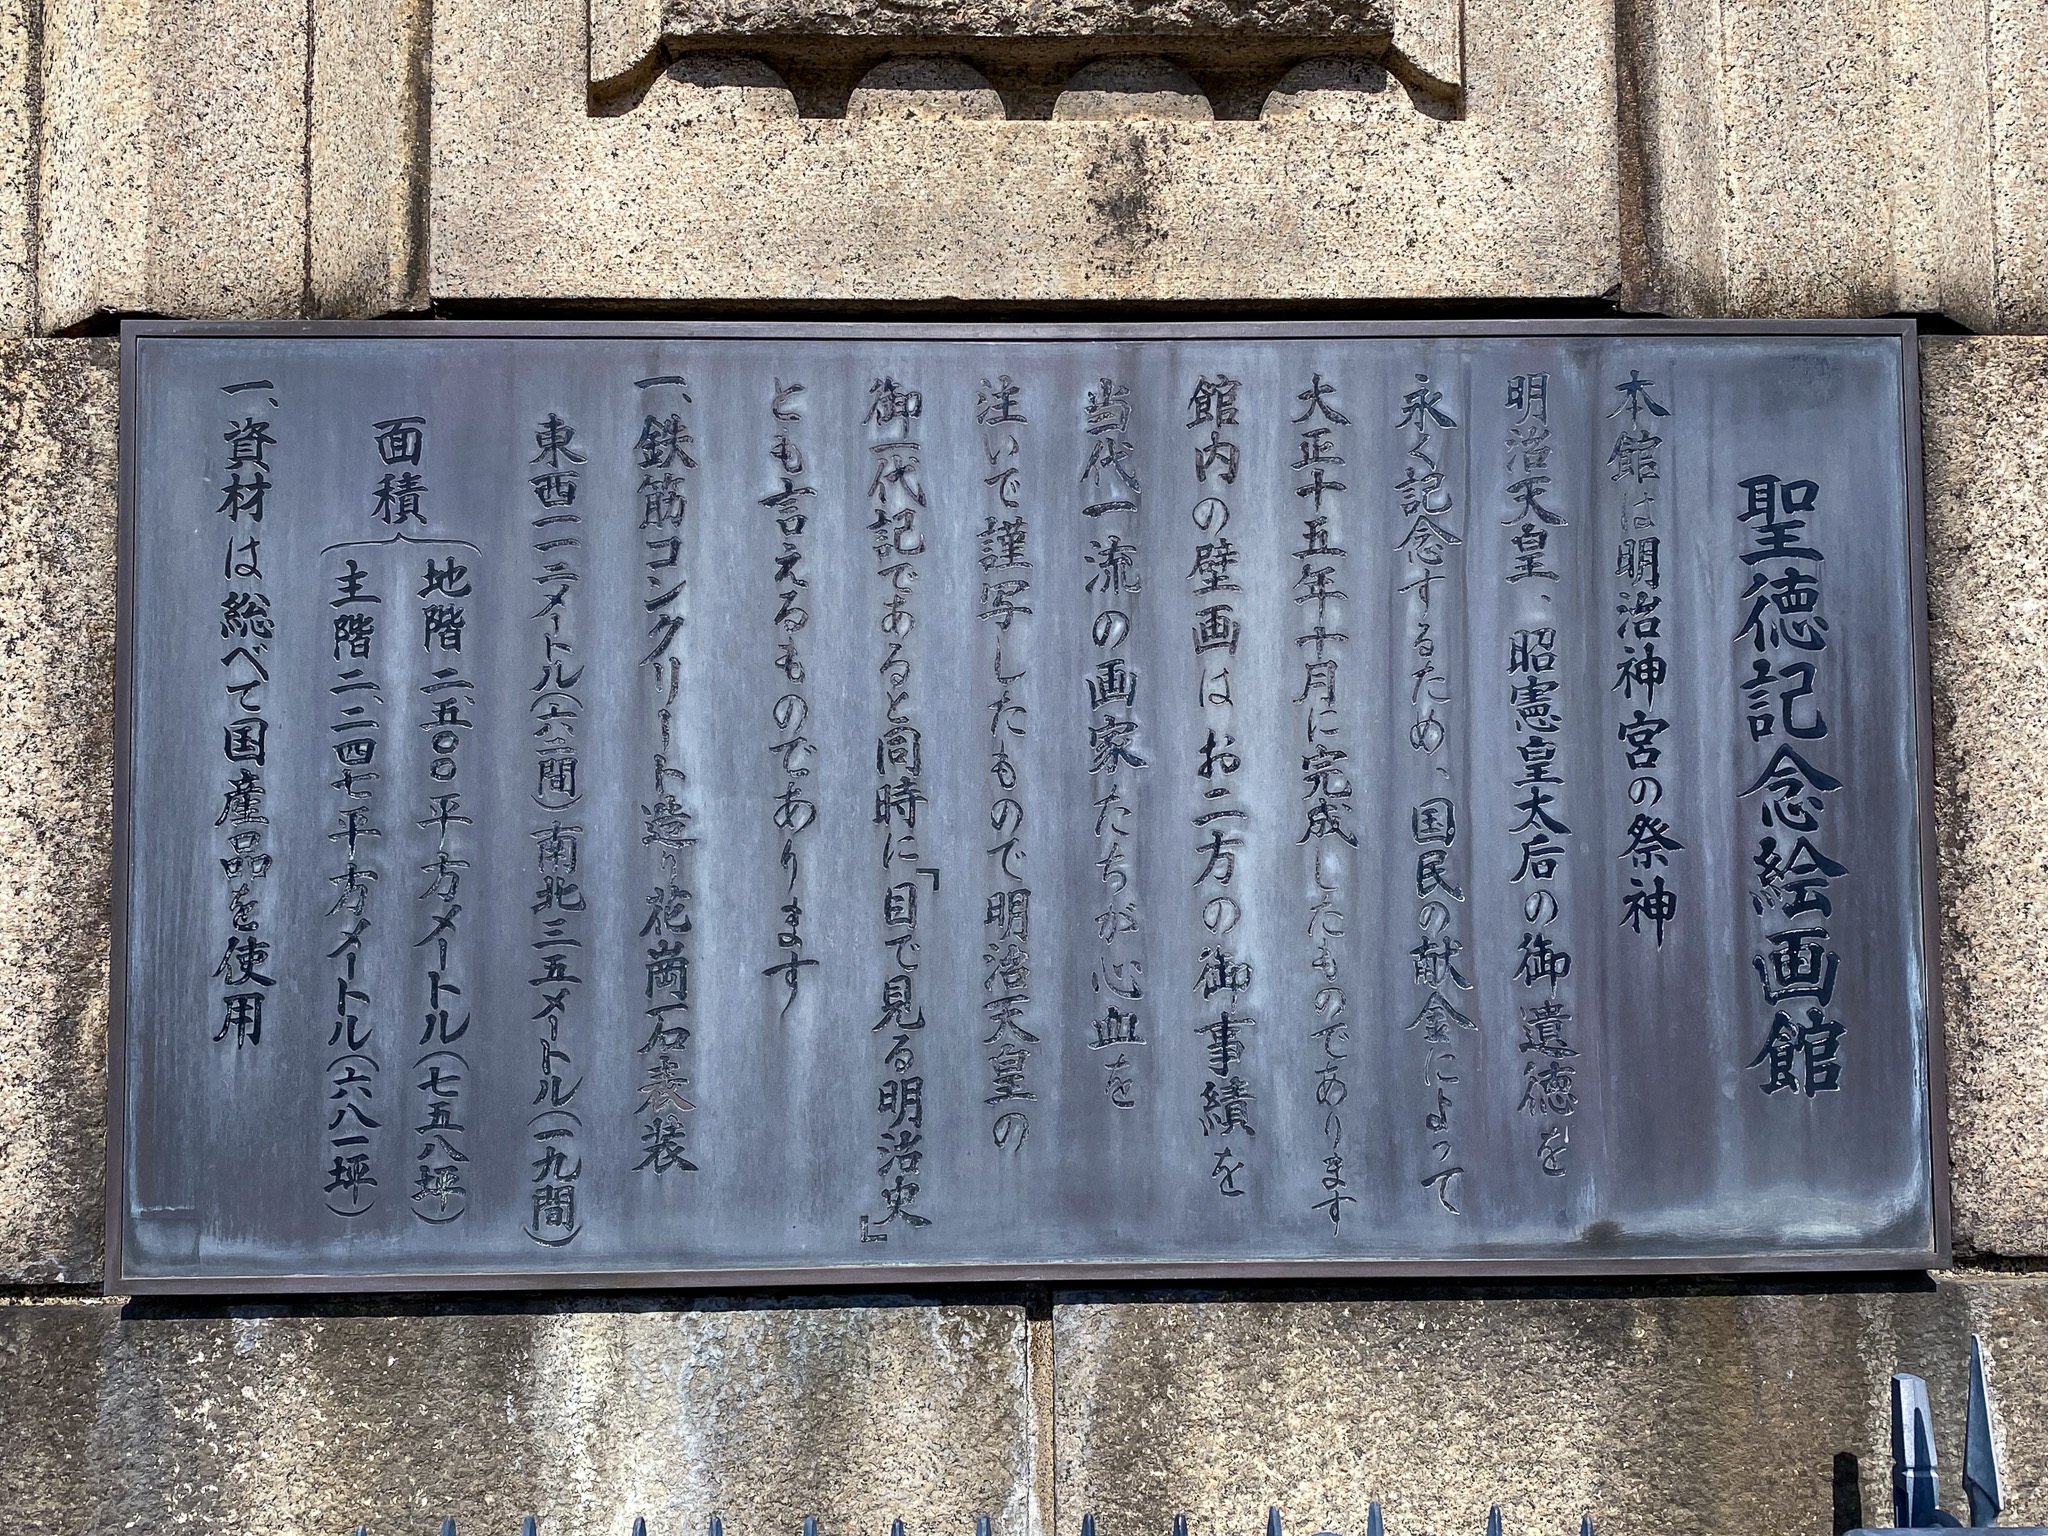 聖徳記念絵画館
本館は明治神宮の祭神
明治天皇、昭憲皇太后の御遺徳を
永く記念するため、国民の献金によって
大正十五年十月に完成したものであります
館内の壁画はお二方の御事績を
当代一流の画家たちが心血を
注いで謹写したもので明治天皇の
御一代記であると同時に「目で見る明治史」
とも言えるものであります
一、鉄筋コンクリート造り花崗石表装
東西一一二メートル(六二間)南北三五メートル(一九間)
面積
地階 二、五〇〇平方メートル(七五八坪)
主階 二、二四七平方メートル(六八一坪)
一、資材は総べて国産品を使用